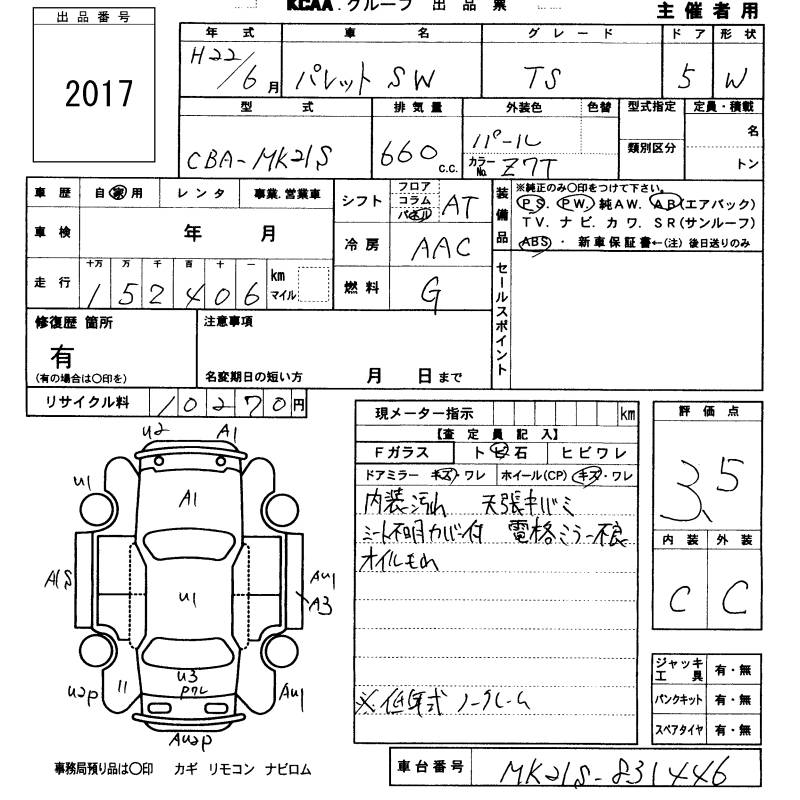 KCAA.グループ 出品票
主催者用
出品番号
2017
年式 車名 グレード ドア 形状
H22/6月 パレット SW TS 5 W
型式 排気量 外装色 色替 型式指定 定員・積載
CBA-MK21S 660 c.c. パール 名
カラーNo. Z7T 類別区分 トン
車歴 自家用 レンタ 事業.営業車
車検 年 月
走行 十万 万 千 百 十 一 km マイル
152406
シフト フロア コラム パネル AT
冷房 AAC
燃料 G
装備品 ※純正のみ○印をつけて下さい。
PS. PW. 純AW. AB(エアバック)
TV. ナビ. カワ. SR(サンルーフ)
ABS・ 新車保証書←(注)後日送りのみ
セールスポイント
修復歴 箇所
有
(有の場合は○印を)
注意事項
名変期日の短い方 月 日まで
リサイクル料 10270円
現メーター指示 km
【査定員記入】
Fガラス トビ石 ヒビワレ
ドアミラー キズ・ワレ ホイール(CP) キズ・ワレ
内装汚れ 天張キバミ
シート不明カバー付 電格ミラー不良
オイルモれ
※低年式 ノークレーム
評価点
3.5
内装 外装
C C
ジャッキ工具 有・無
パンクキット 有・無
スペアタイヤ 有・無
U2 A1
U1
A1
A1S
U1
AU1
A3
U3
U2P
AU1
AU2P
事務局預り品は○印 カギ リモコン ナビロム
車台番号 MK21S-831446